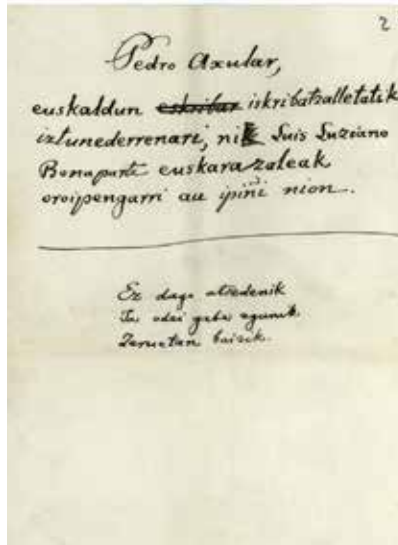 2
Pedro Axular,
euskaldun eskribar iskribatzalletatik
iztunederrenari, nik Luis Luziano
Bonaparte euskarazaleak
oroipengarri au ipiñi nion.
Ez dago atsedenik
Ta odei gabe egunik
Zeruetan baizik.